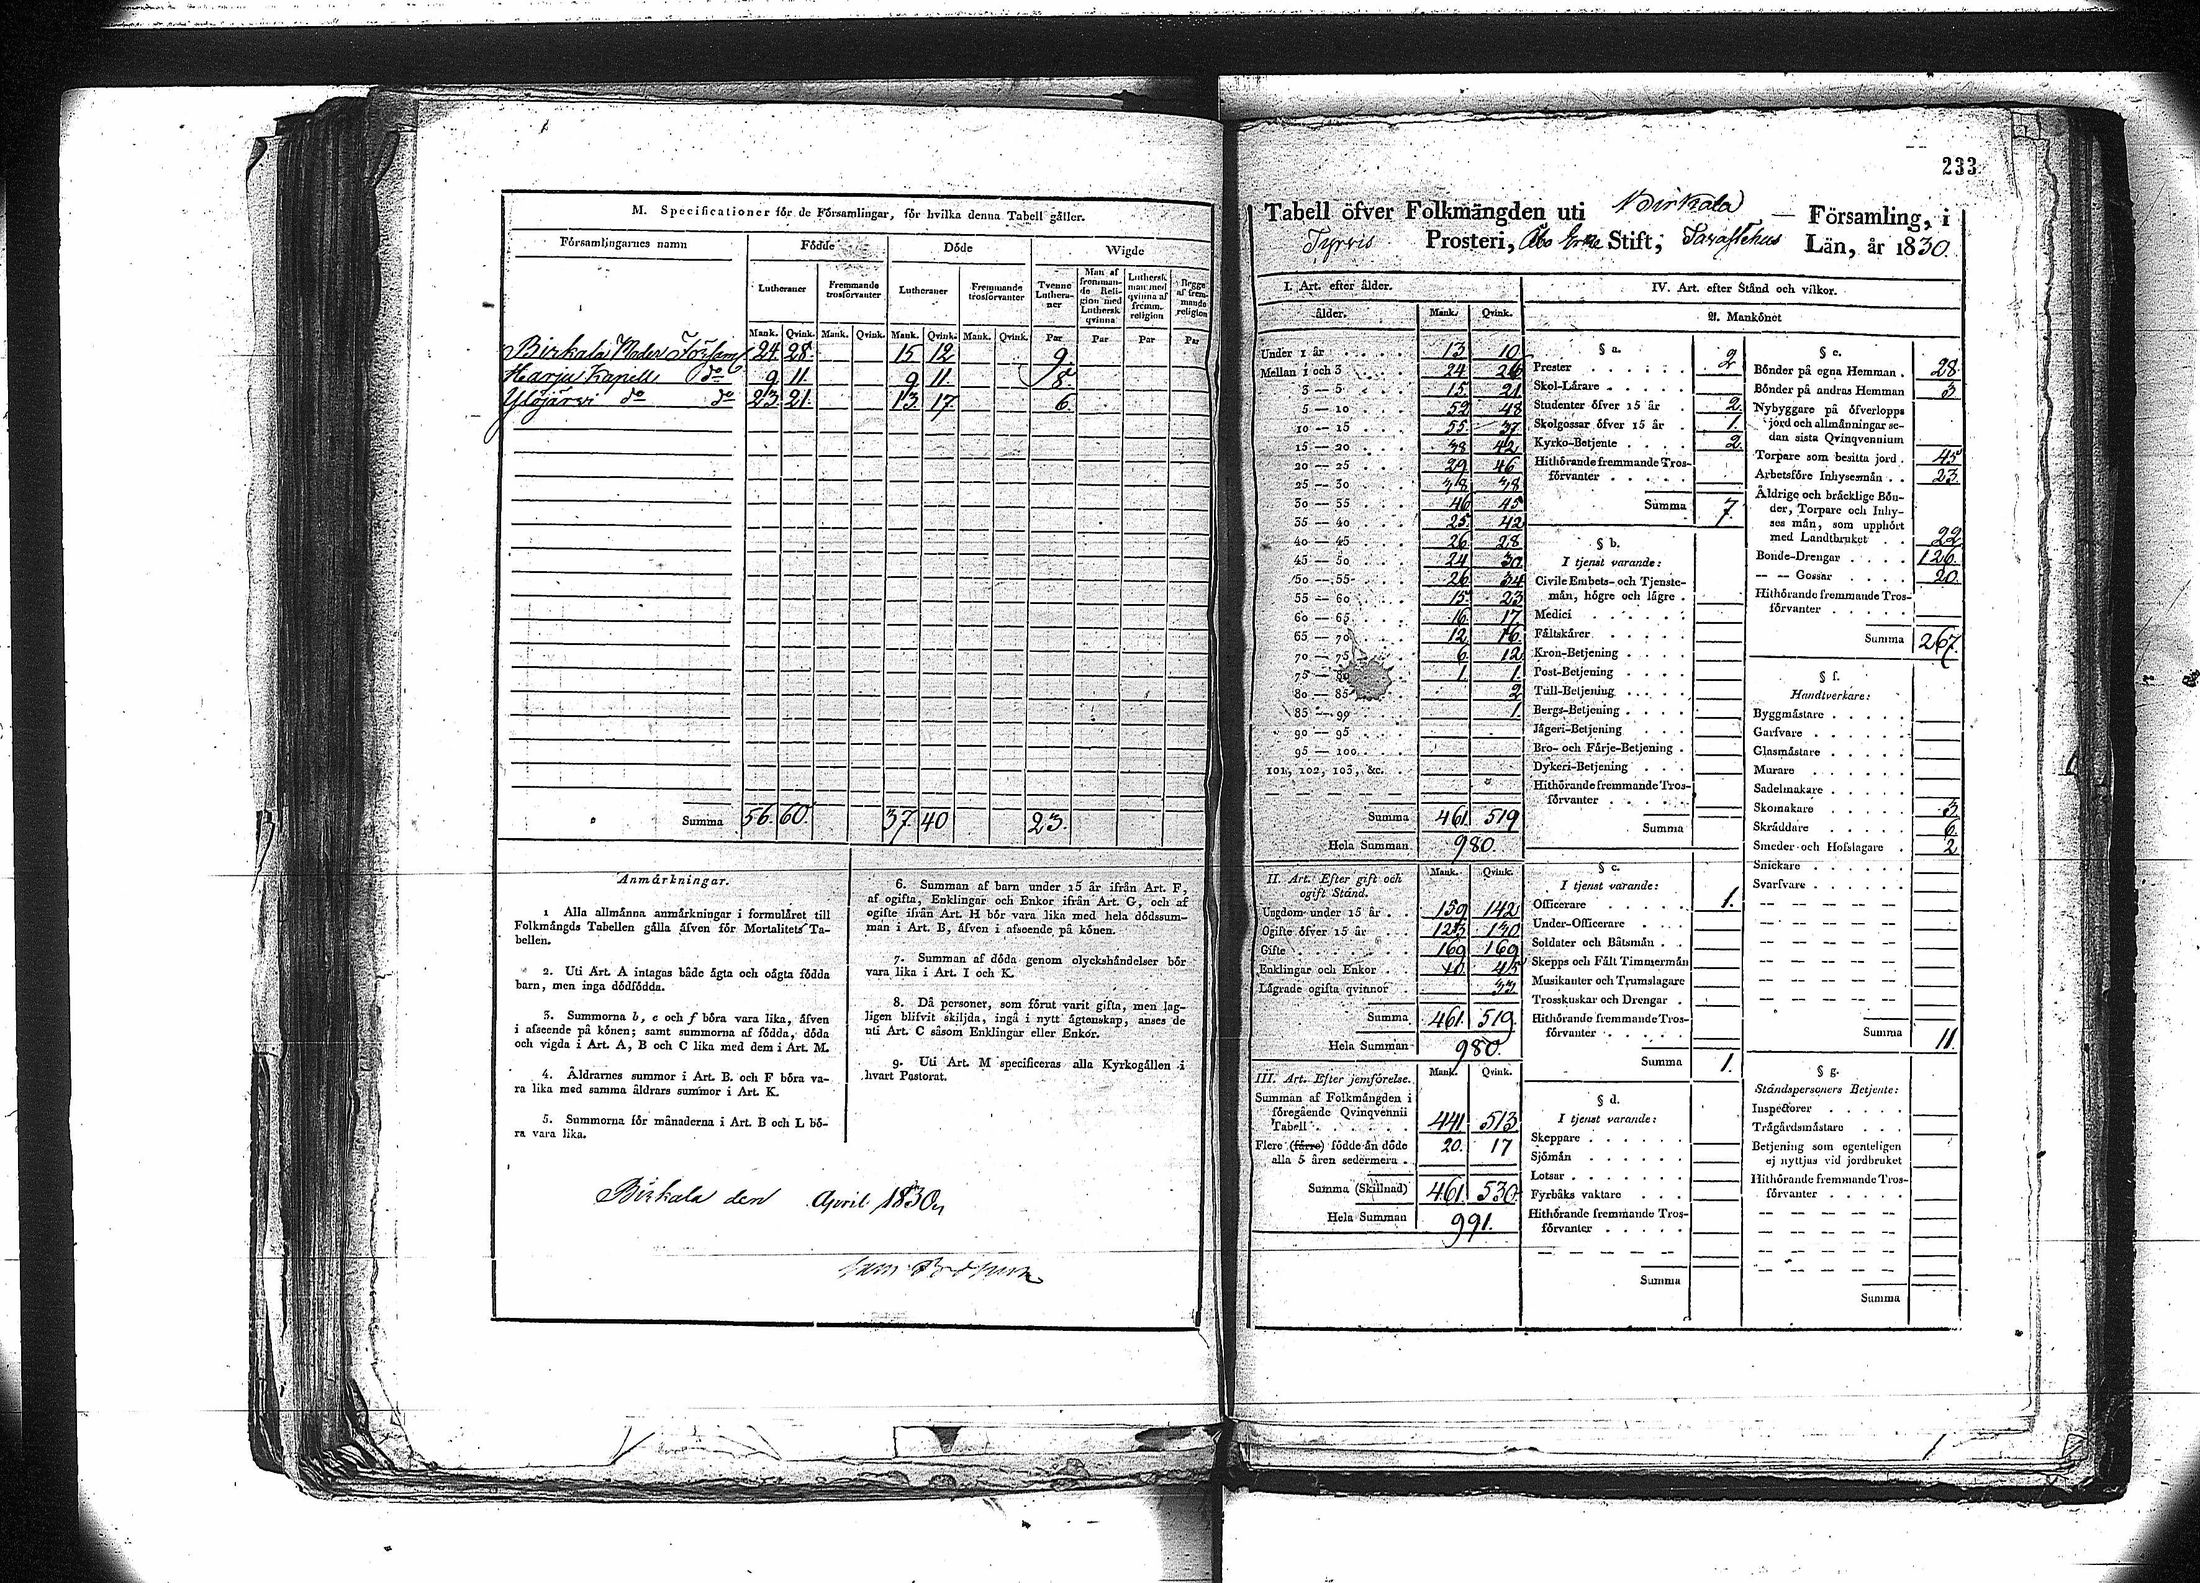 M. Specificationer för de Församlingar, för hvilka denna Tabell gäller.
Församlingarnes namn
Födde
Döde
Wigde
Lutheraner
Fremmande trosförvanter
Lutheraner
Fremmande trosförvanter
Tvenne Lutheraner
Man af fremmande Religion med Luthersk qvinna
Luthersk man med qvinna af fremm. religion
Begge af fremmande religion
Mank. Qvink. Mank. Qvink. Mank. Qvink. Mank. Qvink. Par Par Par Par
Birkala Moder Församl 24. 28. 15 12 9.
Harju Kapell do 9 11. 9 11. 8.
Ylöjärvi do do 23. 21. 13. 17. 6.
Summa 56. 60. 37. 40 23.
Anmärkningar.
1 Alla allmänna anmärkningar i formuläret till
Folkmängds Tabellen gälla äfven för Mortalitets Ta-
bellen.
2. Uti Art. A intagas både ägta och oägta födda
barn, men inga dödfödda.
3. Summorna b, e och f böra vara lika, äfven
i afseende på könen; samt summorna af födda, döda
och vigda i Art. A, B och C lika med dem i Art. M.
4. Äldrarnes summor i Art. B. och F böra va-
ra lika med samma äldrars summor i Art. K.
5. Summorna för månaderna i Art. B och L bö-
ra vara lika.
6. Summan af barn under 15 år ifrån Art. F,
af ogifta, Enklingar och Enkor ifrån Art. G, och af
ogifte ifrån Art. H bör vara lika med hela dödssum-
man i Art. B, äfven i afseende på könen.
7. Summan af döda genom olyckshändelser bör
vara lika i Art. I och K.
8. Då personer, som förut varit gifta, men lag-
ligen blifvit skiljda, ingå i nytt ägtenskap, anses de
uti Art. C såsom Enklingar eller Enkor.
9. Uti Art. M specificeras alla Kyrkogällen i
hvart Pastorat.
Birkala den April 1830
233
Tabell öfver Folkmängden uti Birkala — Församling, i
Tyrvis Prosteri, Åbo Erke Stift, Tavastehus Län, år 1830.
I. Art. efter ålder.
ålder. Mank. Qvink.
Under 1 år 13 10
Mellan 1 och 3 24 26
3 — 5 15. 21
5 — 10 52 48
10 — 15 55 37
15 — 20 38 42
20 — 25 29 46
25 — 30 38 38
30 — 35 46 45
35 — 40 25. 42
40 — 45 26 28
45 — 50 24 30
50 — 55 26 34
55 — 60 15. 23
60 — 65 16 17
65 — 70 12 16
70 — 75 6. 12
75 — 80 1. 1.
80 — 85 2
85 — 90 1.
90 — 95
95 — 100
101, 102, 103, &c.
Summa 461. 519
Hela Summan 980.
II. Art. Efter gift och ogift Stånd. Mank. Qvink.
Ungdom under 15 år 159 142
Ogifte öfver 15 år 123 130
Gifte 169 169
Enklingar och Enkor 10. 45
Lägrade ogifta qvinnor 33
Summa 461. 519.
Hela Summan 980.
III. Art. Efter jemförelse. Mank. Qvink.
Summan af Folkmängden i
föregående Qvinqvennii
Tabell 441 513
Flere (färre) födde än döde
alla 5 åren sedermera 20. 17
Summa (Skillnad) 461. 530.
Hela Summan 991.
IV. Art. efter Stånd och vilkor.
A. Mankönet
§ a.
Prester 2
Skol-Lärare
Studenter öfver 15 år 2.
Skolgossar öfver 15 år 1.
Kyrko-Betjente 2.
Hithörande fremmande Tros-
förvanter
Summa 7.
§ b.
I tjenst varande:
Civile Embets- och Tjenste-
män, högre och lägre
Medici
Fältskärer
Kron-Betjening
Post-Betjening
Tull-Betjening
Bergs-Betjening
Jägeri-Betjening
Bro- och Färje-Betjening
Dykeri-Betjening
Hithörande fremmande Tros-
förvanter
Summa
§ c.
I tjenst varande:
Officerare 1.
Under-Officerare
Soldater och Båtsmän
Skepps och Fält Timmermän
Musikanter och Trumslagare
Trosskuskar och Drengar
Hithörande fremmande Tros-
förvanter
Summa 1.
§ d.
I tjenst varande:
Skeppare
Sjömän
Lotsar
Fyrbåks vaktare
Hithörande fremmande Tros-
förvanter
Summa
§ e.
Bönder på egna Hemman 28.
Bönder på andras Hemman 3
Nybyggare på öfverlopps
jord och allmänningar se-
dan sista Qvinqvennium
Torpare som besitta jord 45
Arbetsföre Inhysesmän 23.
Äldrige och bräcklige Bön-
der, Torpare och Inhy-
ses män, som upphört
med Landtbruket 22
Bonde-Drengar 126.
— — Gossar 20.
Hithörande fremmande Tros-
förvanter
Summa 267.
§ f.
Handtverkare:
Byggmästare
Garfvare
Glasmästare
Murare
Sadelmakare
Skomakare 3
Skräddare 6.
Smeder och Hofslagare 2
Snickare
Svarfvare
Summa 11.
§ g.
Ståndspersoners Betjente:
Inspektorer
Trägårdsmästare
Betjening som egenteligen
ej nyttjas vid jordbruket
Hithörande fremmande Tros-
förvanter
Summa